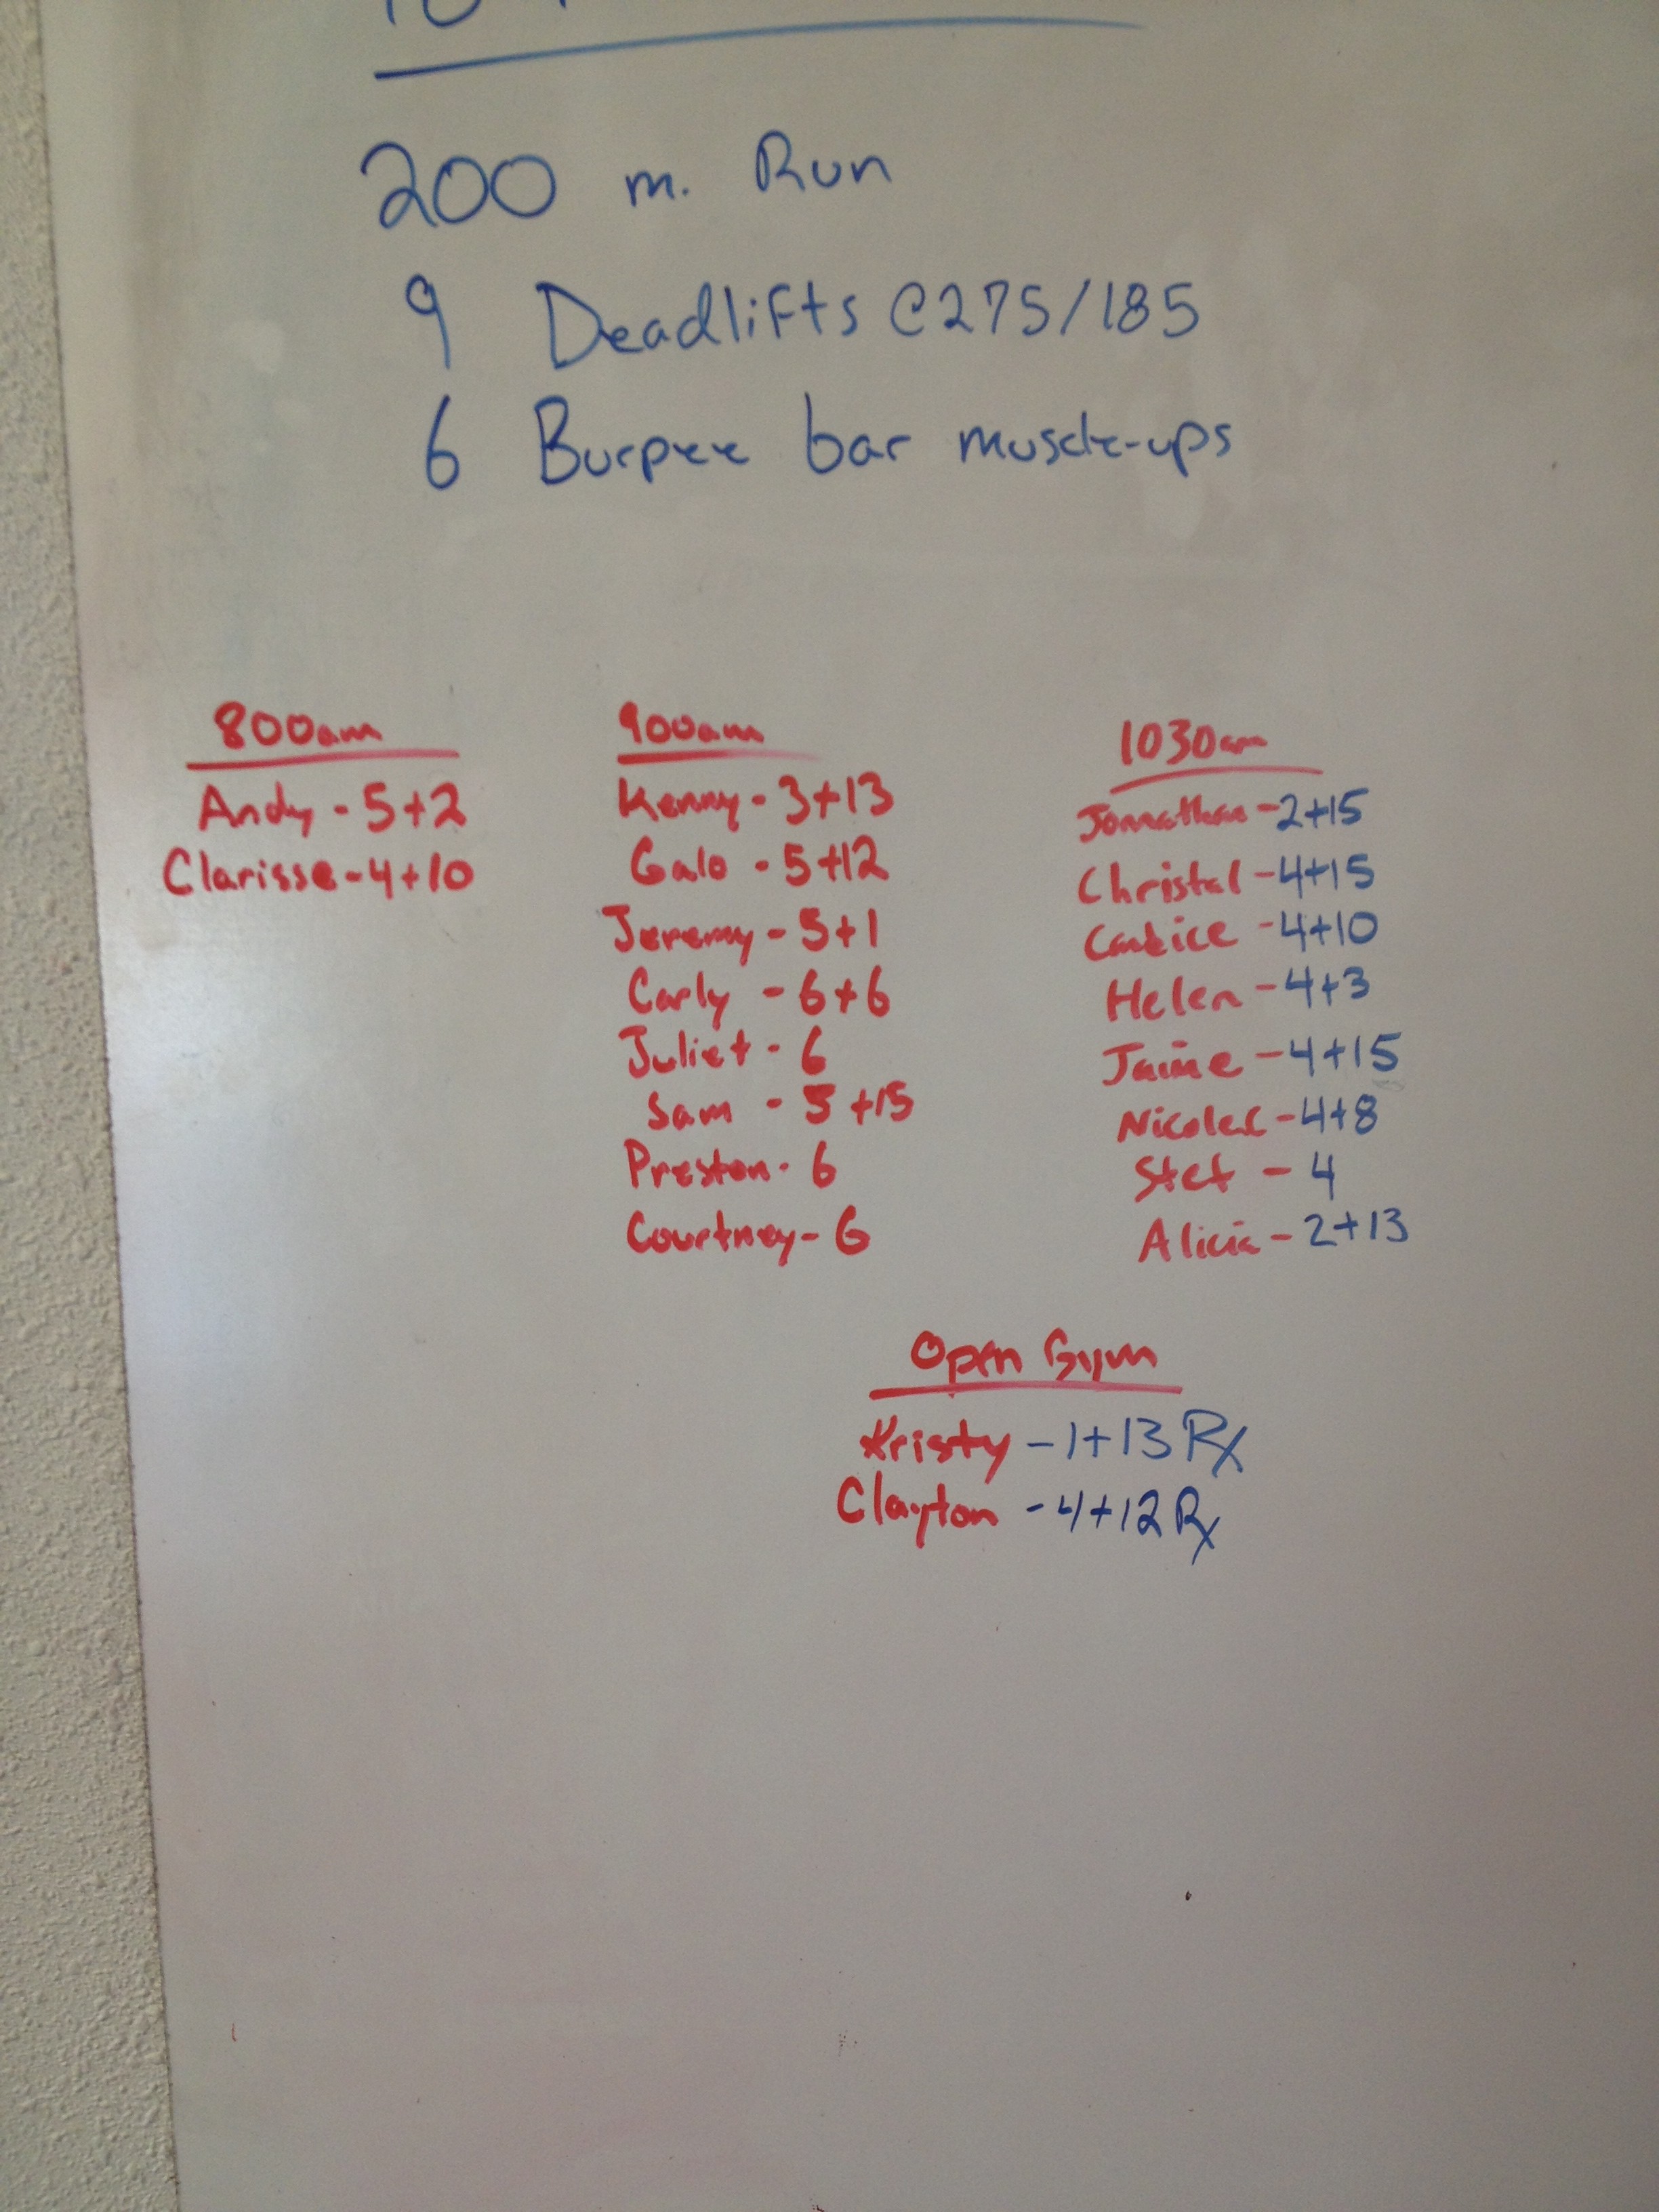 200 m. Run
9 Deadlifts @275/185
6 Burpee bar muscle-ups
800am
Andy - 5+2
Clarisse - 4+10
900am
Kenny - 3+13
Galo - 5+12
Jeremy - 5+1
Carly - 6+6
Juliet - 6
Sam - 5+15
Preston - 6
Courtney - 6
1030am
Jonnathan - 2+15
Christal - 4+15
Candice - 4+10
Helen - 4+3
Jaime - 4+15
- 4+8
Stef - 4
Alicia - 2+13
Open Gym
Kristy - 1+13 Rx
Clayton - 4+12 Rx